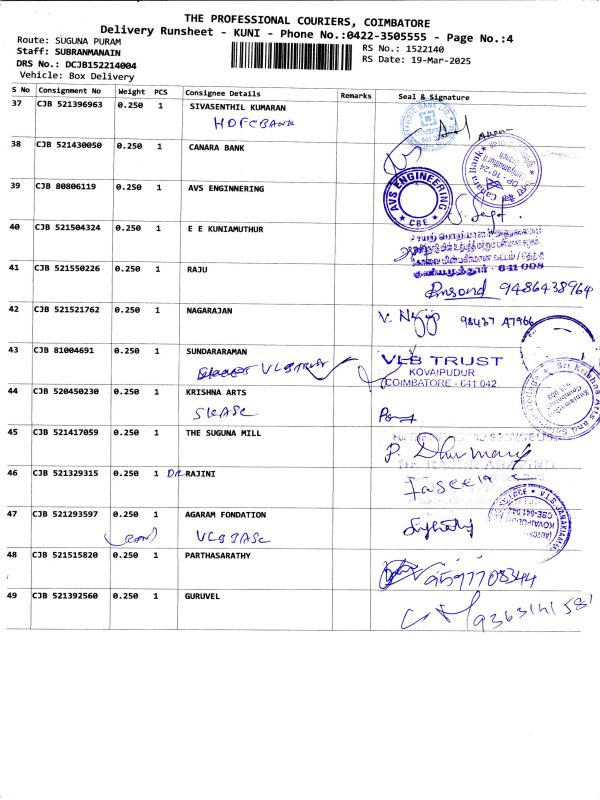 THE PROFESSIONAL COURIERS, COIMBATORE
Delivery Runsheet - KUNI - Phone No.:0422-3505555 - Page No.:4
Route: SUGUNA PURAM
RS No.: 1522140
Staff: SUBRANMANAIN
RS Date: 19-Mar-2025
DRS No.: DCJB152214004
Vehicle: Box Delivery
S No Consignment No Weight PCS Consignee Details Remarks Seal & Signature
37 CJB 521396963 0.250 1 SIVASENTHIL KUMARAN
HDFC BANK
38 CJB 521430050 0.250 1 CANARA BANK
Canara Bank
39 CJB 80806119 0.250 1 AVS ENGINNERING
AVS ENGINEERING
CBE
40 CJB 521504324 0.250 1 E E KUNIAMUTHUR
குனியமுத்தூர் - 641 008
41 CJB 521550226 0.250 1 RAJU
9486438964
42 CJB 521521762 0.250 1 NAGARAJAN
98437 47966
43 CJB 81004691 0.250 1 SUNDARARAMAN
VLB TRUST
VLB TRUST
KOVAIPUDUR
COIMBATORE - 641 042
44 CJB 520450230 0.250 1 KRISHNA ARTS
SKASC
45 CJB 521417059 0.250 1 THE SUGUNA MILL
46 CJB 521329315 0.250 1 DR RAJINI
47 CJB 521293597 0.250 1 AGARAM FONDATION
VLBJASC
48 CJB 521515820 0.250 1 PARTHASARATHY
9597708344
49 CJB 521392560 0.250 1 GURUVEL
9363141581